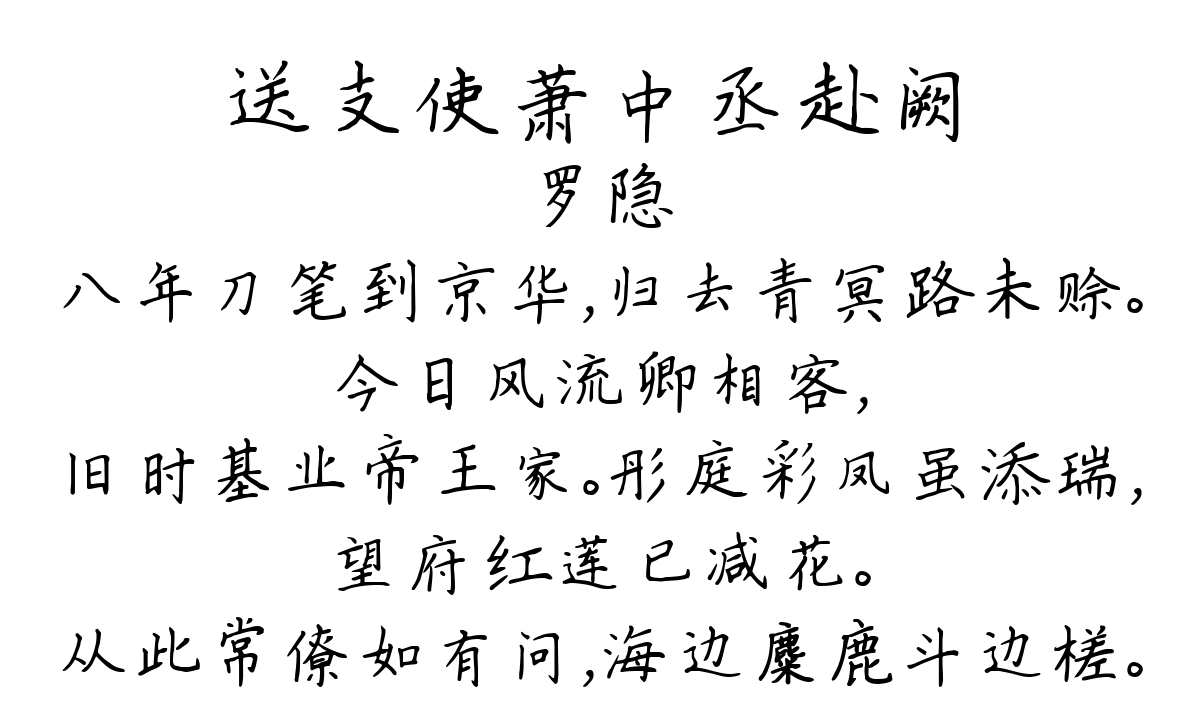 送支使萧中丞赴阙
罗隐
八年刀笔到京华,归去青冥路未赊。
今日风流卿相客,
旧时基业帝王家。彤庭彩凤虽添瑞,
望府红莲已减花。
从此常僚如有问,海边麋鹿斗边槎。